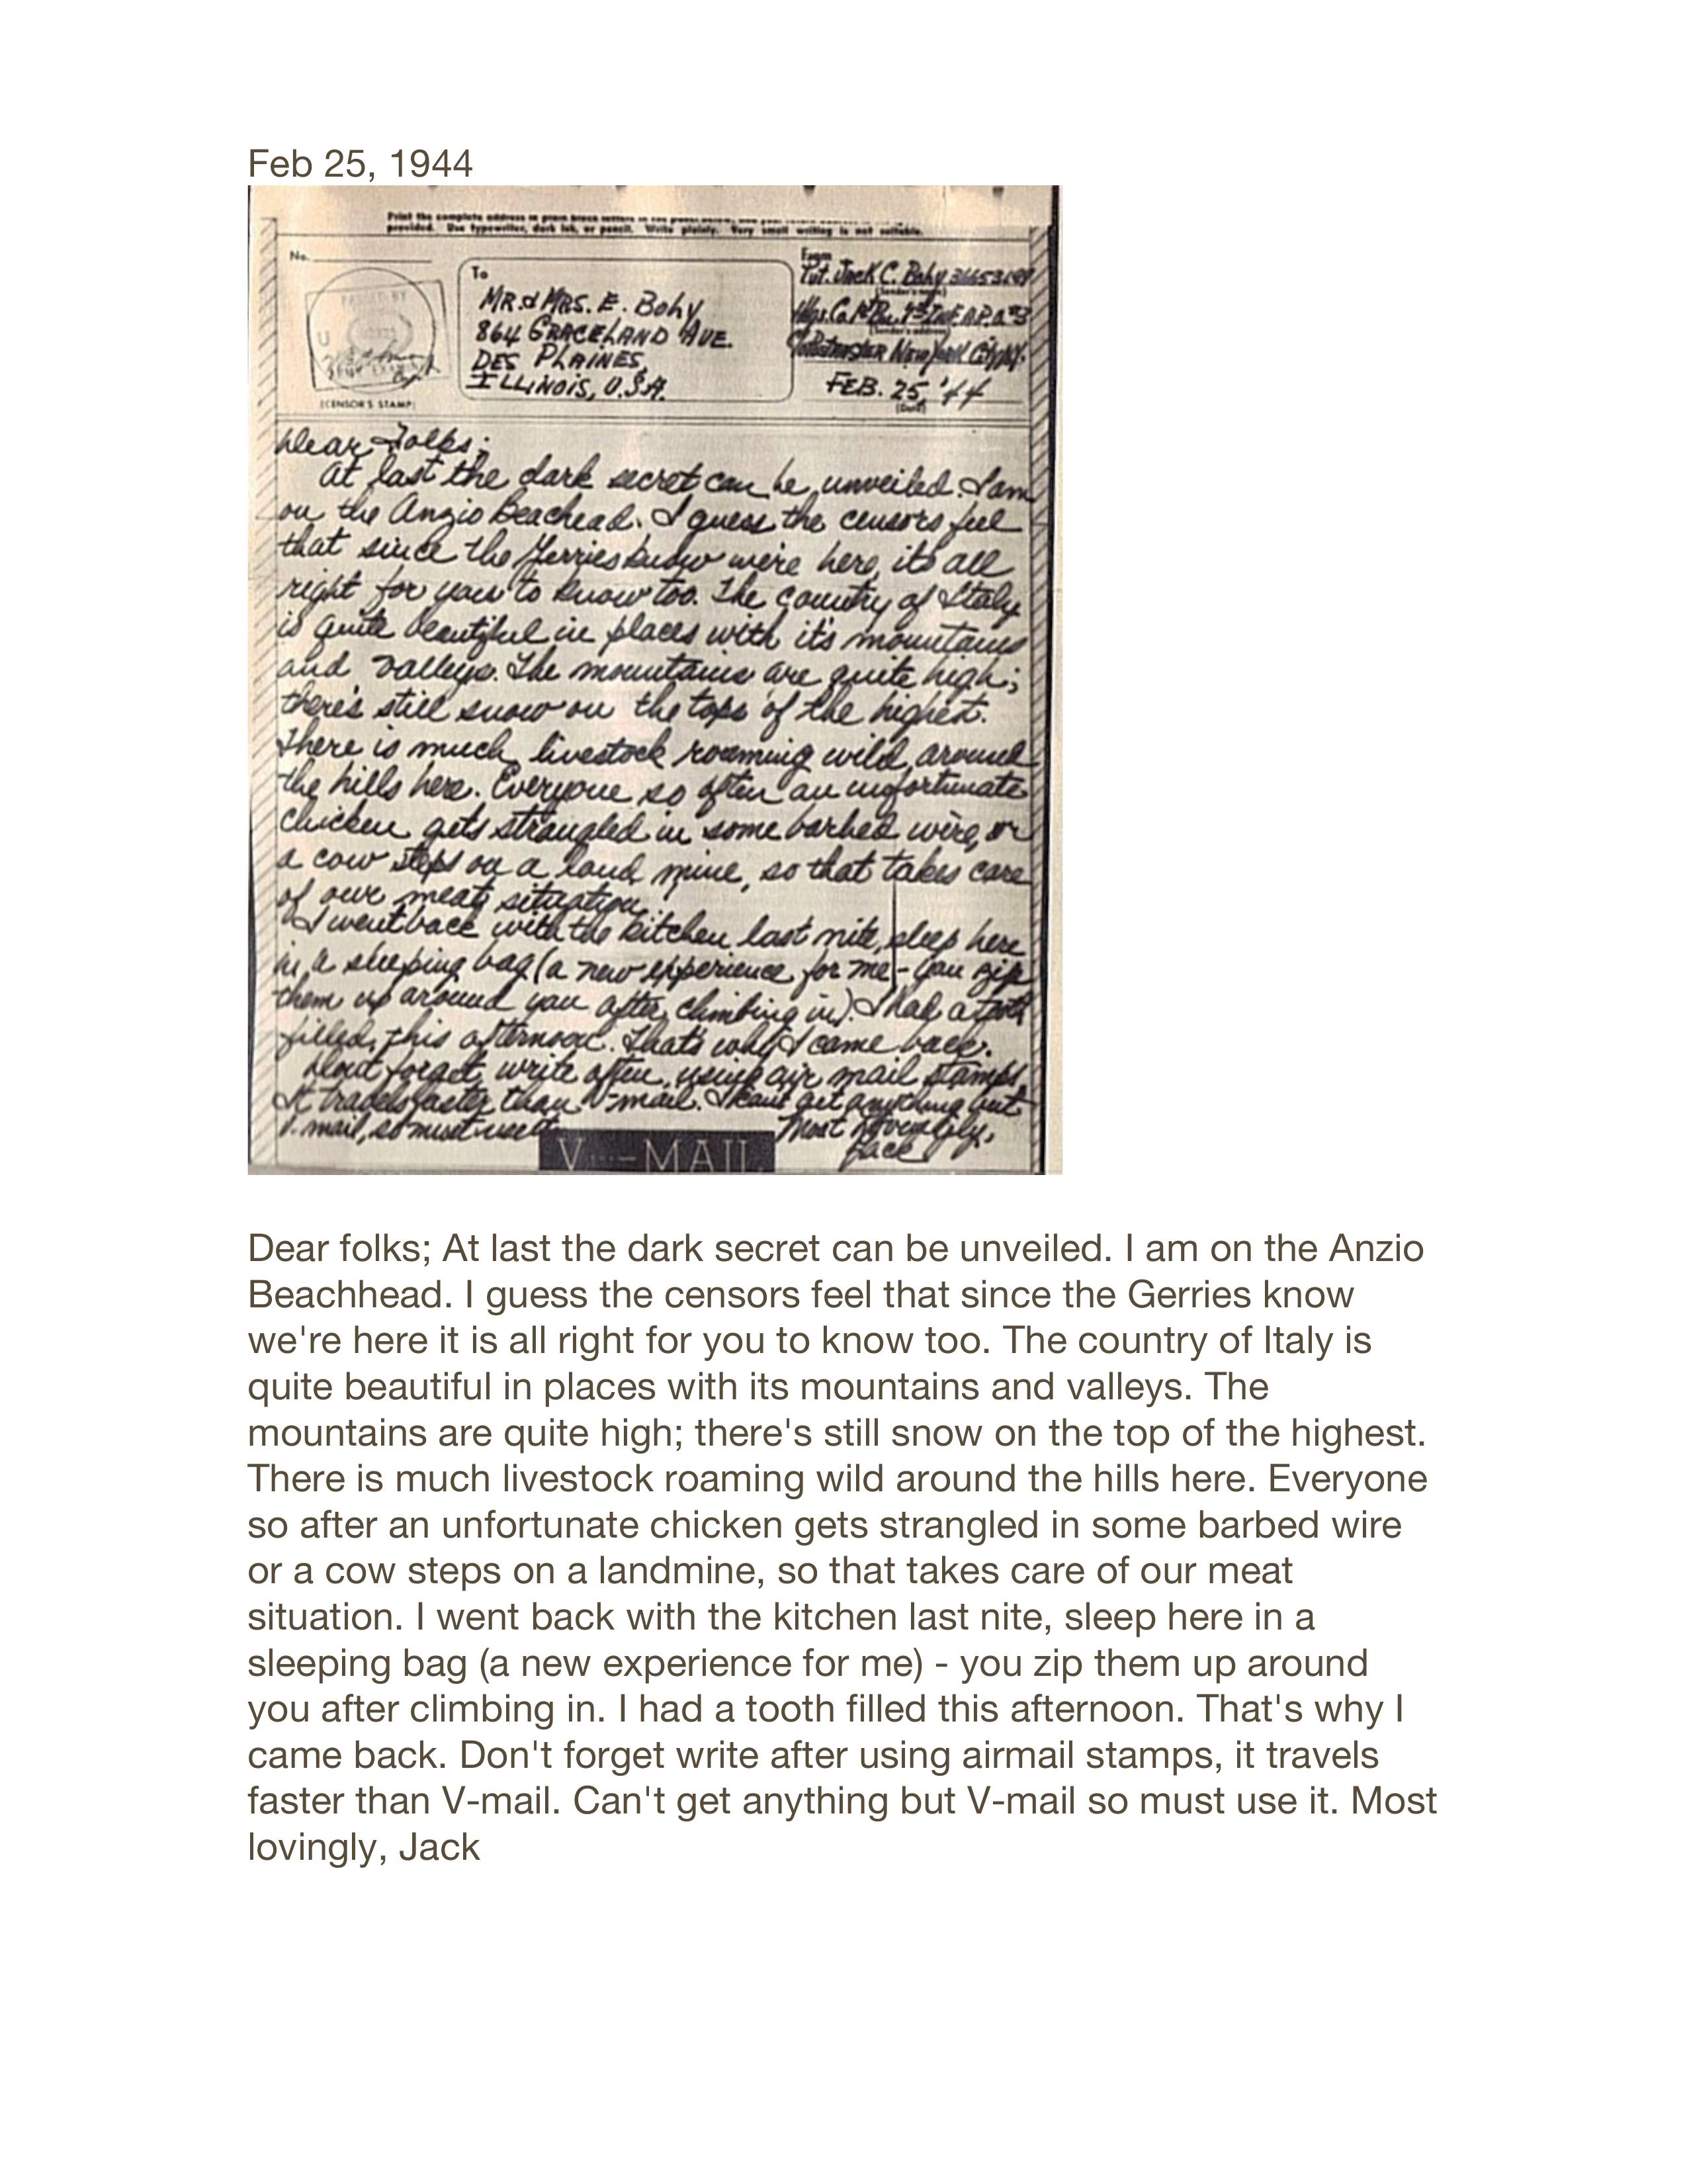 Feb 25, 1944
Print the complete address in plain block letters in the
provided. Use typewriter, dark ink, or pencil. Write plainly. Very small writing is not suitable.
No.
PASSED BY
U
(CENSOR'S STAMP)
To
MR. & MRS. E. Bohy
864 GRACELAND AVE.
DES PLAINES,
ILLINOIS, U.S.A.
From
Pvt. Jack C. Bohy
(Sender's name)
(Sender's address)
Postmaster New York City
FEB. 25, '44
(Date)
Dear Folks;
At last the dark secret can be unveiled. I am
on the Anzio Beachead. I guess the censors feel
that since the Jerries know we're here, it's all
right for you to know too. The country of Italy
is quite beautiful in places with it's mountains
and valleys. The mountains are quite high;
there's still snow on the tops of the highest.
There is much livestock roaming wild around
the hills here. Everyone so often an unfortunate
chicken gets strangled in some barbed wire, or
a cow steps on a land mine, so that takes care
of our meat situation.
I went back with the kitchen last nite, sleep here
in a sleeping bag (a new experience for me - you zip
them up around you after climbing in). I had a tooth
filled, this afternoon. That's why I came back.
Dont forget, write often, using air mail stamps,
It travels faster than V-mail. I cant get anything but
V-mail, so must use it. Most lovingly,
Jack
V···-MAIL
Dear folks; At last the dark secret can be unveiled. I am on the Anzio
Beachhead. I guess the censors feel that since the Gerries know
we're here it is all right for you to know too. The country of Italy is
quite beautiful in places with its mountains and valleys. The
mountains are quite high; there's still snow on the top of the highest.
There is much livestock roaming wild around the hills here. Everyone
so after an unfortunate chicken gets strangled in some barbed wire
or a cow steps on a landmine, so that takes care of our meat
situation. I went back with the kitchen last nite, sleep here in a
sleeping bag (a new experience for me) - you zip them up around
you after climbing in. I had a tooth filled this afternoon. That's why I
came back. Don't forget write after using airmail stamps, it travels
faster than V-mail. Can't get anything but V-mail so must use it. Most
lovingly, Jack